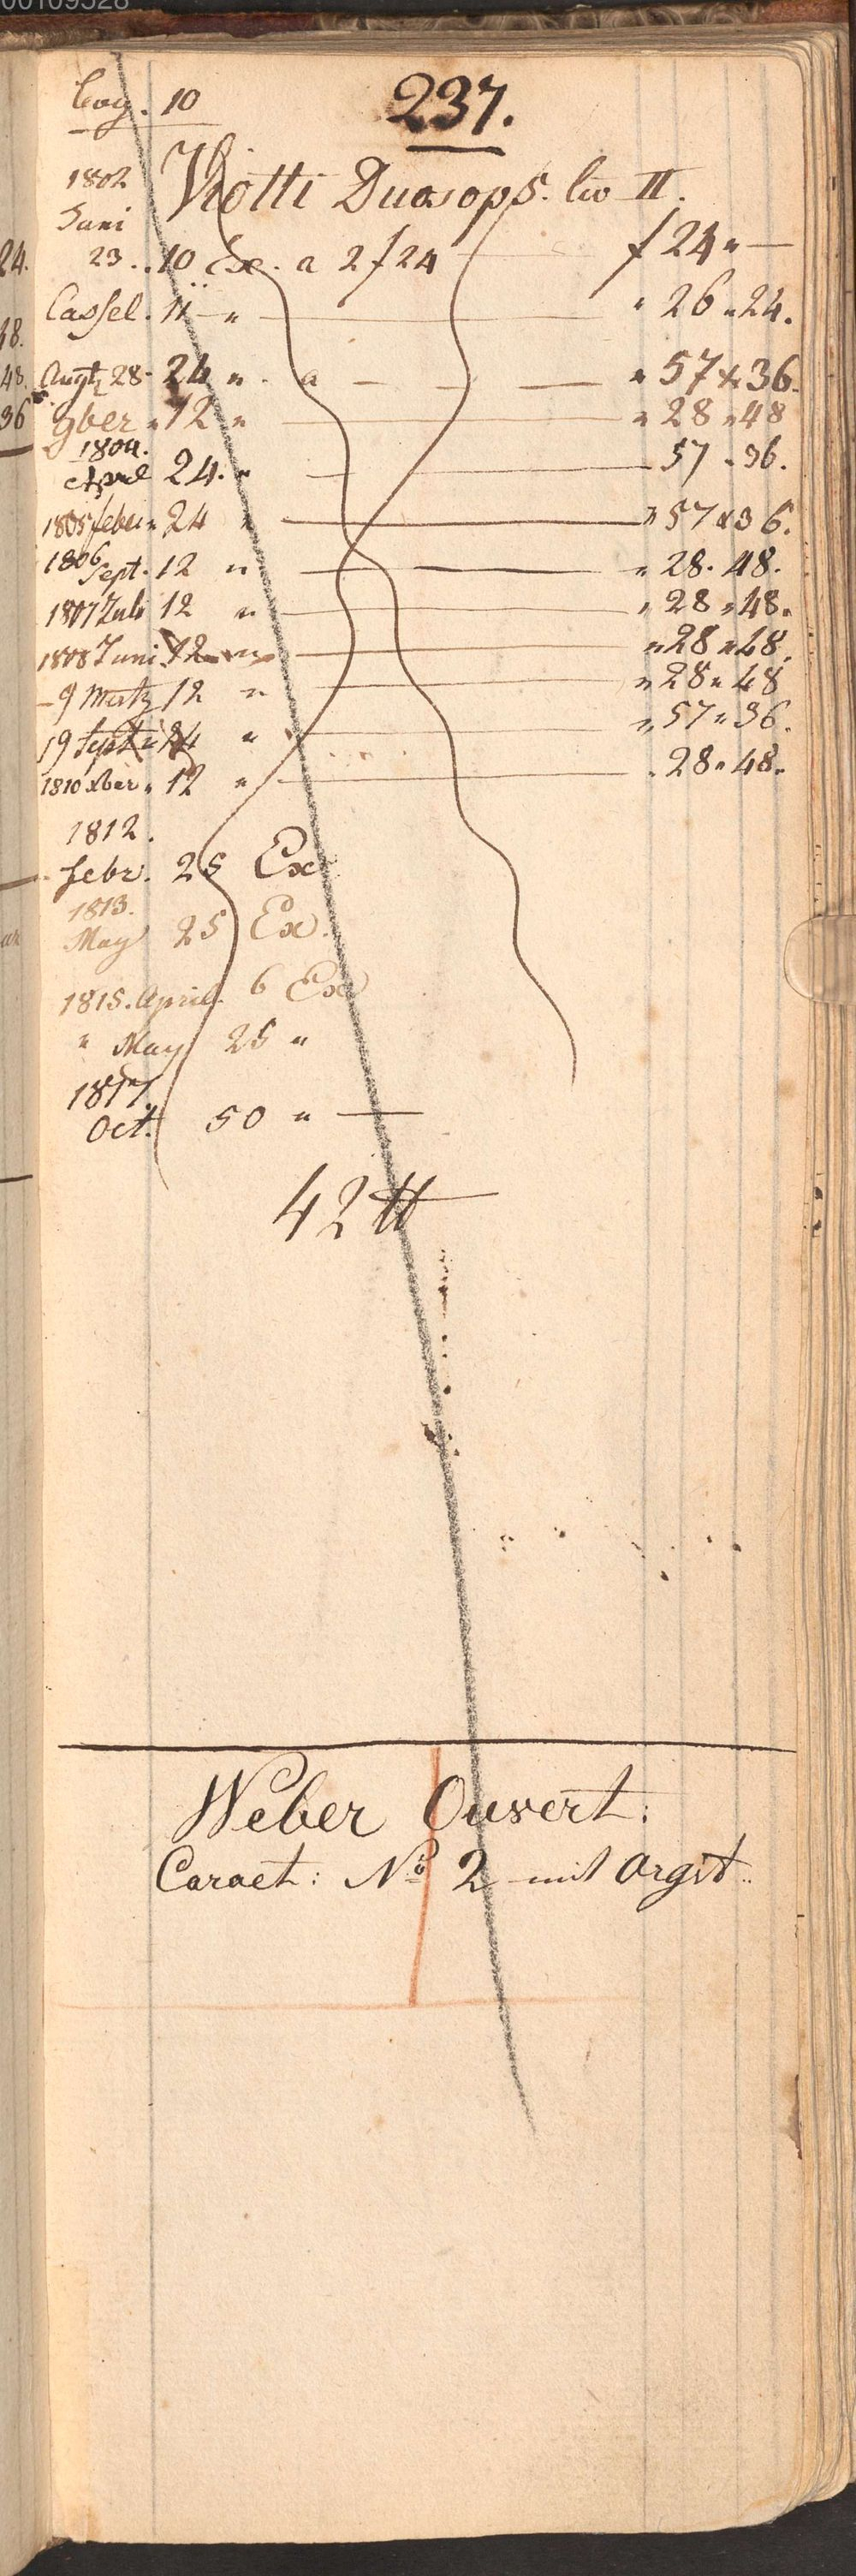 00109528
Cog. 10
237.
1802 Viotti Duos op 5. Liv II.
Juni
23. 10 Ex. a 2 f 24 f 24 "
Cassel. 11 " " 26 " 24.
Augt 28 24 " a " 57 x 36.
9ber " 12 " " 28 " 48
1804.
April 24. " 57 " 36.
1805 feber " 24 " " 57 x 36.
1806
Sept. 12 " " 28. 48.
1807 Juli 12 " " 28 " 48.
1808 Juni 12 " " 28 " 48.
- 9 Martz 12 " " 28 " 48
19 Sept 24 " " 57 " 36.
1810 xber " 12 " " 28 " 48.
1812.
febr. 25 Ex
1813.
May 25 Ex.
1815. April. 6 Ex
" May 25 "
1817.
Oct. 50 "
42 ℔
Weber Ouvert:
Caract: No 2 mit Orgst.
24.
18.
48.
36